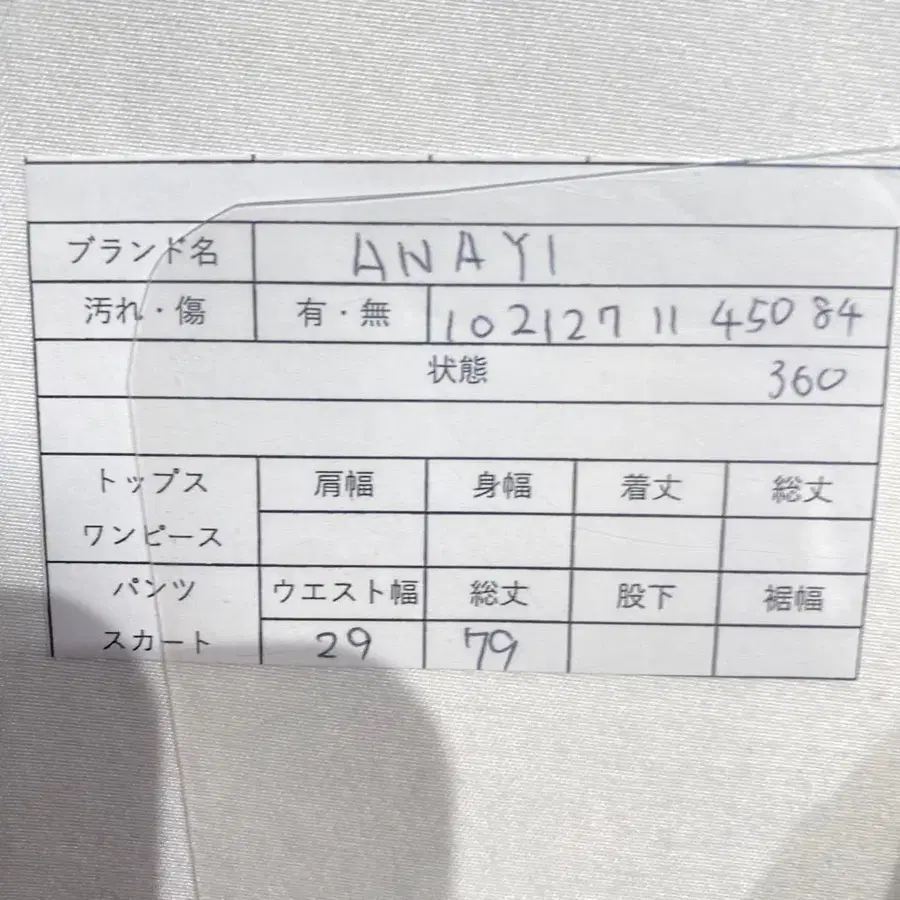 ブランド名 ANAYI
汚れ・傷 有・無 102127 11 45084
状態 360
トップス 肩幅 身幅 着丈 総丈
ワンピース
パンツ ウエスト幅 総丈 股下 裾幅
スカート 29 79